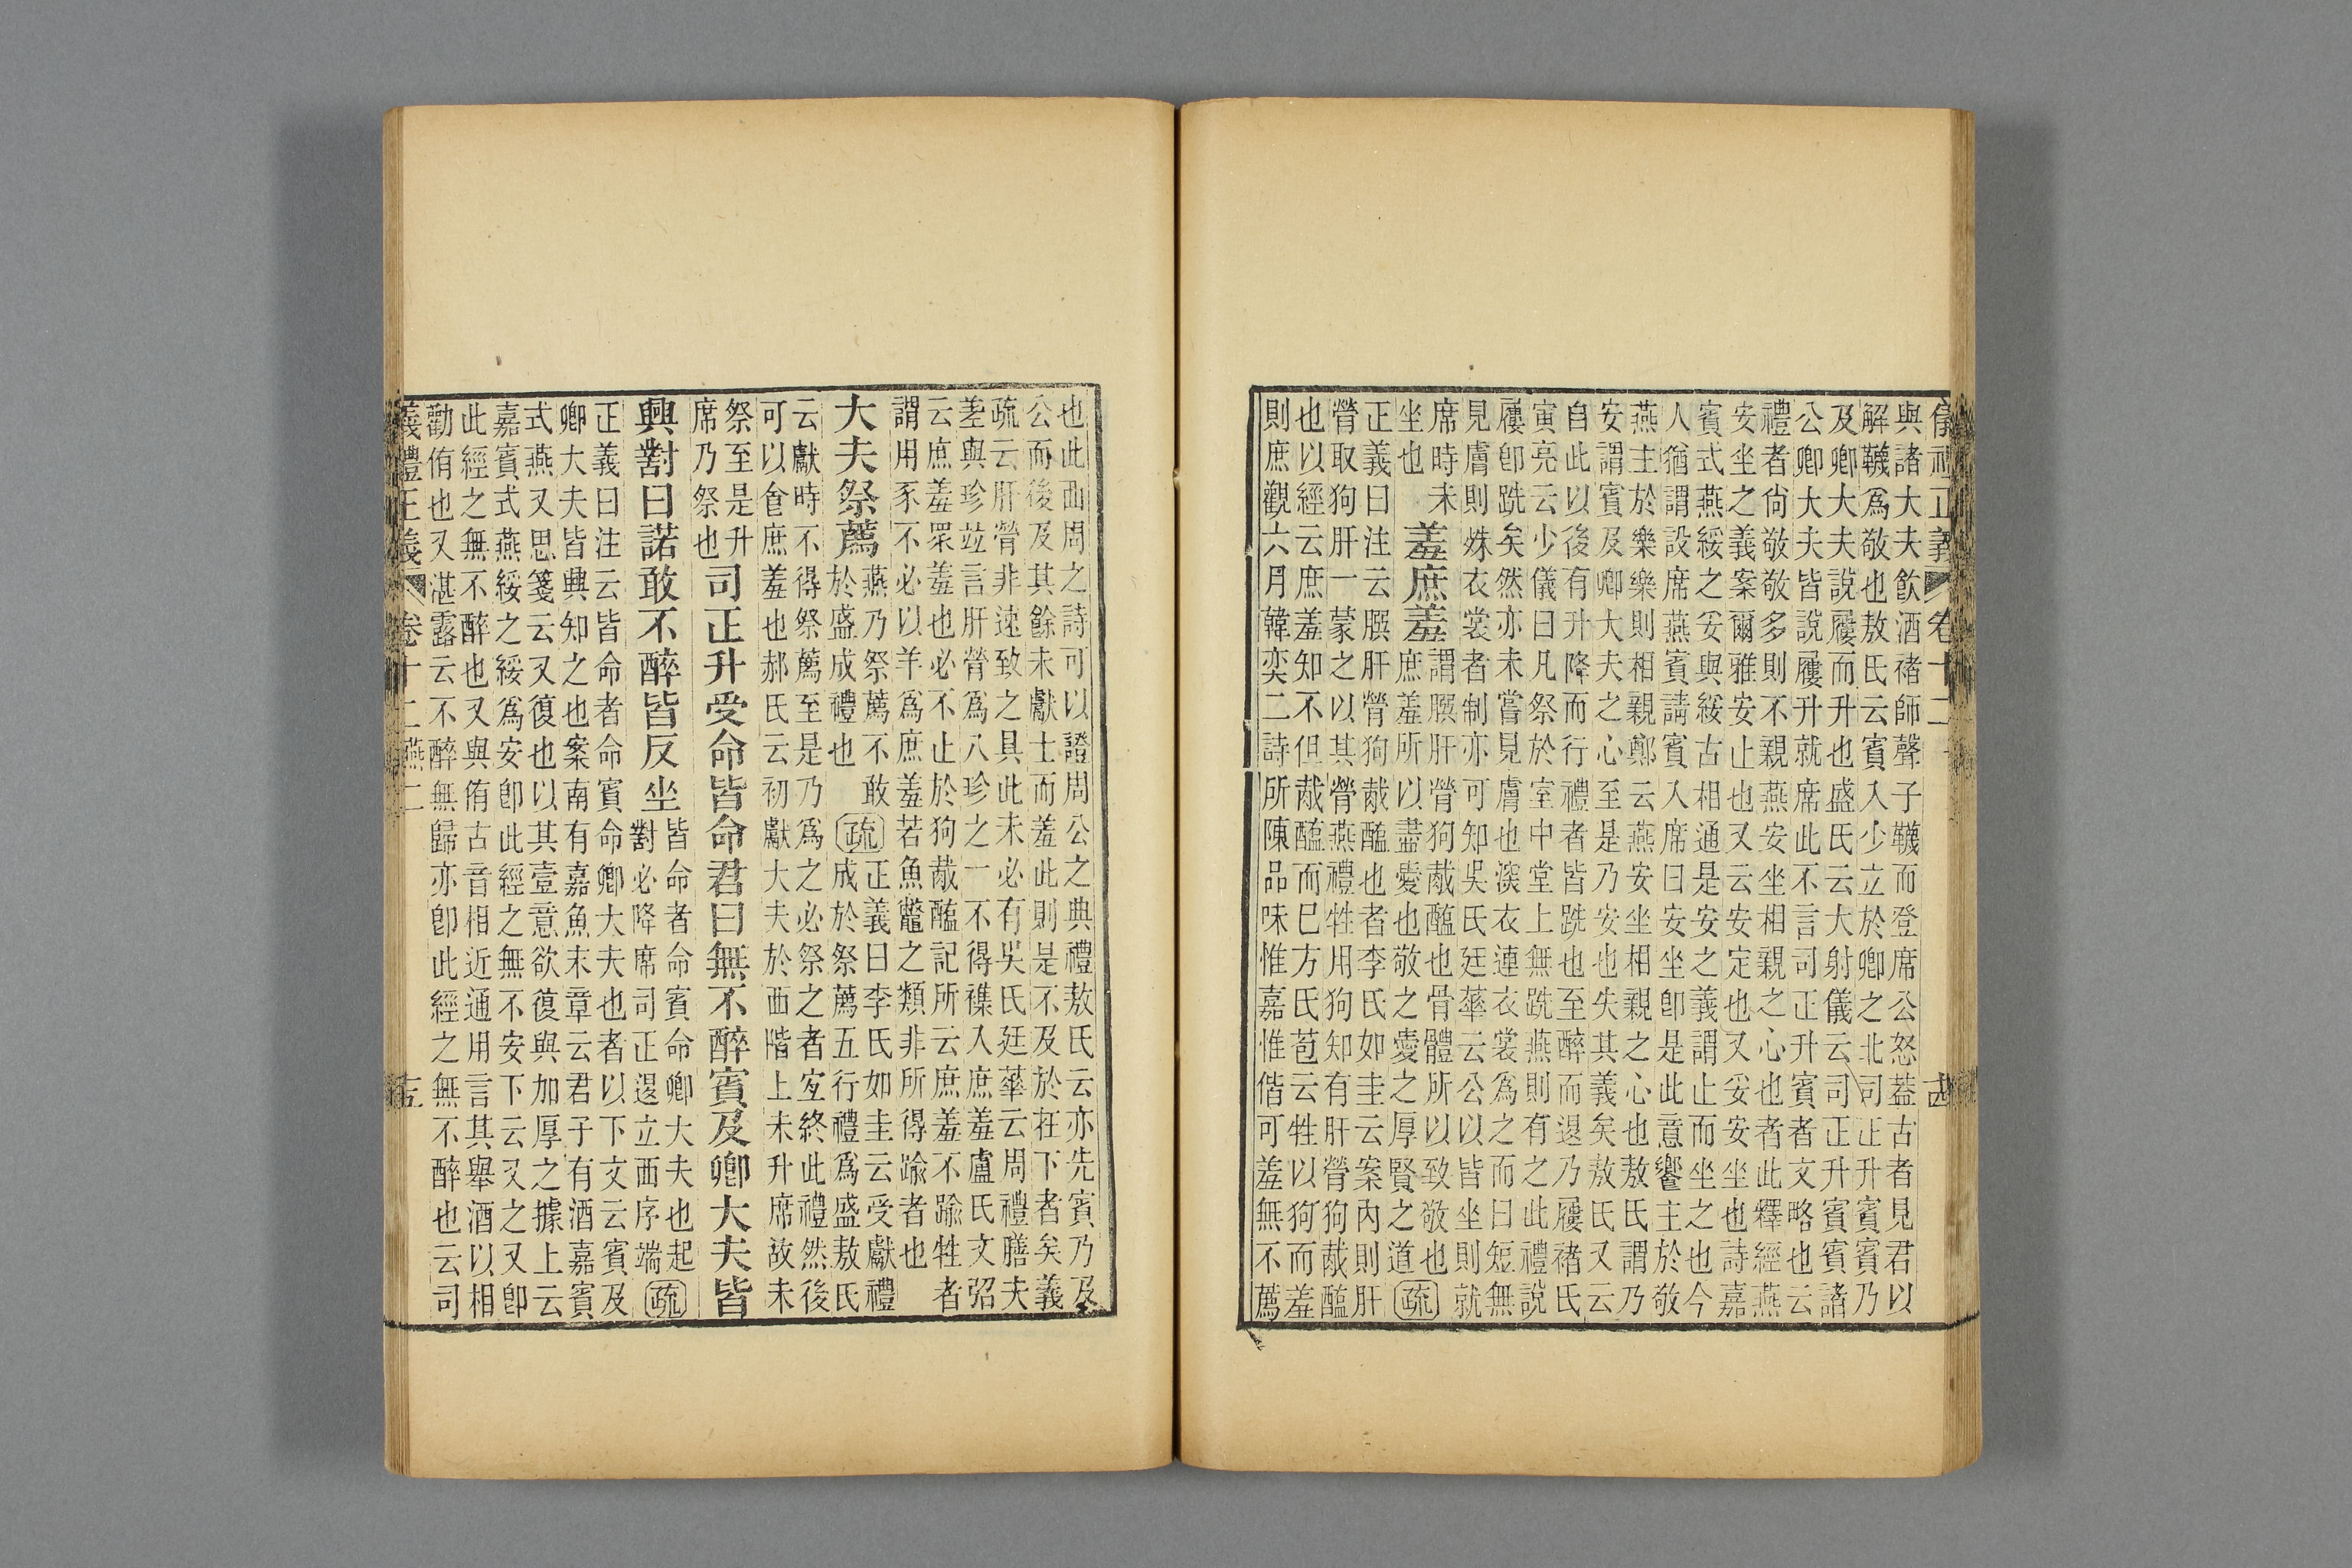 儀禮正義 卷十二 十四
與諸大夫飲酒褚師聲子韈而登席公怒葢古者見君以
解韈爲敬也敖氏云賓入少立於卿之北司正升賓賓乃
及卿大夫說屨而升也盛氏云大射儀云司正升賓賓諸
公卿大夫皆說屨升就席此不言司正升賓者文略也云
禮者尙敬敬多則不親燕安坐相親之心也者此釋經燕
安坐之義案爾雅安止也又云安定也又妥安坐也詩嘉
賓式燕綏之妥與綏古相通是安之義謂止而坐之也今
人猶謂設席燕賓請賓入席曰安坐卽是此意饗主於敬
燕主於樂樂則相親鄭云燕安坐相親之心也敖氏謂乃
安謂賓及卿大夫之心至是乃安也失其義矣敖氏又云
自此以後有升降而行禮者皆跣也至醉而退乃屨褚氏
寅亮云少儀曰凡祭於室中堂上無跣燕則有之此禮說
屨卽跣矣然亦未嘗見膚也深衣連衣裳爲之而曰短無
見膚則殊衣裳者制亦可知吳氏廷華云公以皆坐則就
席時未
坐也
羞庶羞
謂𦠆肝膋狗胾醢也骨體所以致敬也
庶羞所以盡愛也敬之愛之厚賢之道也
疏
正義曰注云𦠆肝膋狗胾醢也者李氏如圭云案內則肝
膋取狗肝一蒙之以其膋燕禮牲用狗知有肝膋狗胾醢
也以經云庶羞知不但胾醢而已方氏苞云牲以狗而羞
則庶觀六月韓奕二詩所陳品味惟嘉惟偕可羞無不薦
也此西周之詩可以證周公之典禮敖氏云亦先賓乃及
公而後及其餘未獻士而羞此則是不及於在下者矣義
疏云肝膋非速致之具此未必有吳氏廷華云周禮膳夫
羞與珍竝言肝膋爲八珍之一不得襍入庶羞盧氏文弨
云庶羞眾羞也必不止於狗胾醢記所云庶羞不踰牲者
謂用豕不必以羊爲庶羞若魚鼈之類非所得踰者也
大夫祭薦
燕乃祭薦不敢
於盛成禮也
疏
正義曰李氏如圭云受獻禮
成於祭薦五行禮爲盛敖氏
云獻時不得祭薦至是乃爲之必祭之者宐終此禮然後
可以食庶羞也郝氏云初獻大夫於西階上未升席故未
祭至是升
席乃祭也
司正升受命皆命君曰無不醉賓及卿大夫皆
興對曰諾敢不醉皆反坐
皆命者命賓命卿大夫也起
對必降席司正退立西序端
疏
正義曰注云皆命者命賓命卿大夫也者以下文云賓及
卿大夫皆興知之也案南有嘉魚末章云君子有酒嘉賓
式燕又思箋云又復也以其壹意欲復與加厚之據上云
嘉賓式燕綏之綏爲安卽此經之無不安下云又之又卽
此經之無不醉也又與侑古音相近通用言其舉酒以相
勸侑也又湛露云不醉無歸亦卽此經之無不醉也云司
義禮正義 卷十二 燕二 十五